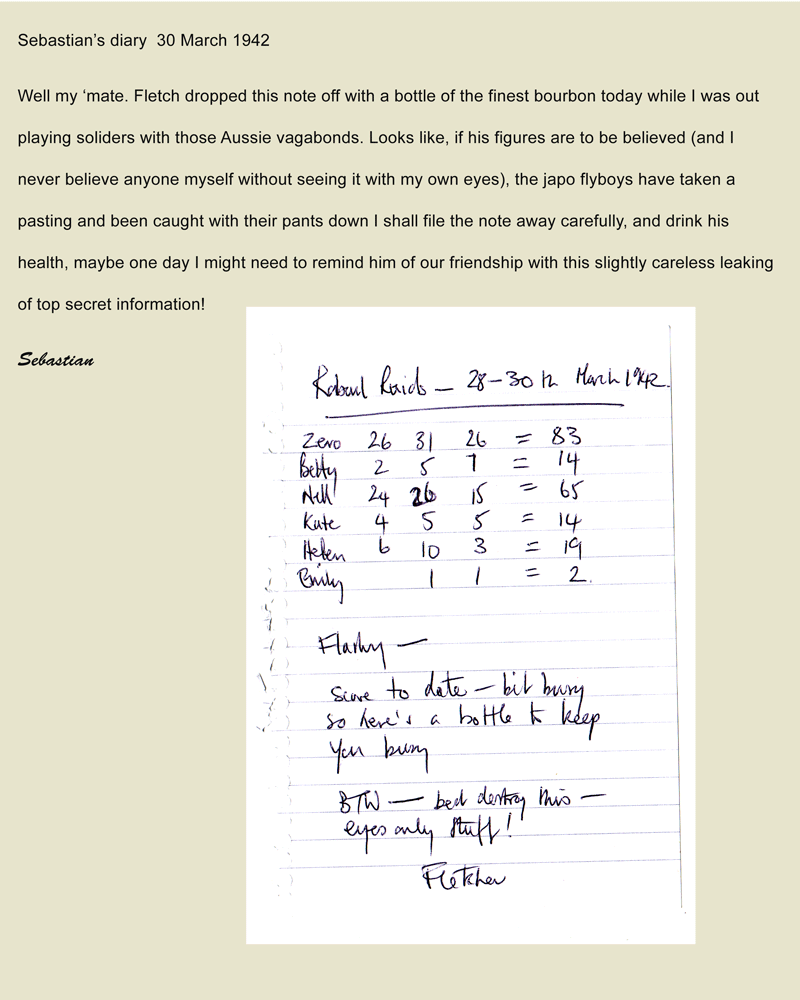 Sebastian’s diary  30 March 1942
Well my ‘mate. Fletch dropped this note off with a bottle of the finest bourbon today while I was out
playing soliders with those Aussie vagabonds. Looks like, if his figures are to be believed (and I
never believe anyone myself without seeing it with my own eyes), the japo flyboys have taken a
pasting and been caught with their pants down I shall file the note away carefully, and drink his
health, maybe one day I might need to remind him of our friendship with this slightly careless leaking
of top secret information!
Sebastian
Rabaul Raids — 28-30th March 1942.
Zero 26 31 26 = 83
Betty 2 5 7 = 14
Nell 24 26 15 = 65
Kate 4 5 5 = 14
Helen 6 10 3 = 19
Emily 1 1 = 2.
Flashy —
to date — bit busy
so here's a bottle to keep
you busy
BTW — best destroy this —
eyes only stuff!
Fletcher